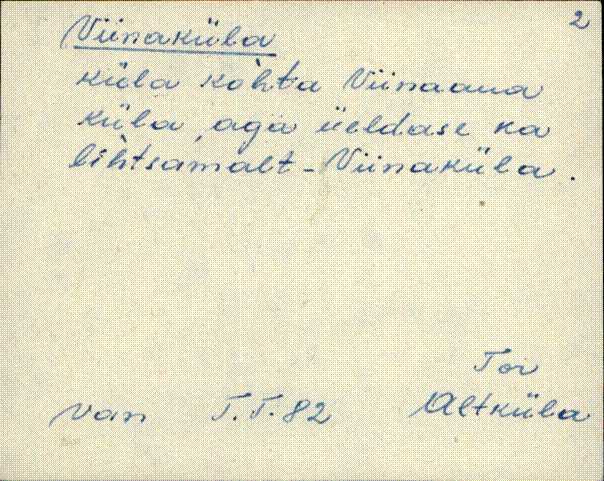 2
Viinaküla
küla kòhta Viinaaua
küla, aga üeldase ka
lihtsamalt - Viinaküla.
Tor
Van T.T. 82 Altküla